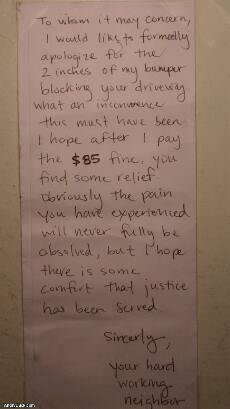 To whom it may concern,
I would like to formally
apologize for the
2 inches of my bumper
blocking your driveway
what an inconvience
this must have been
I hope after I pay
the $85 fine, you
find some relief
obviously the pain
you have experienced
will never fully be
absolved, but I hope
there is some
comfort that justice
has been served
Sincerly,
your hard
working
neighbor